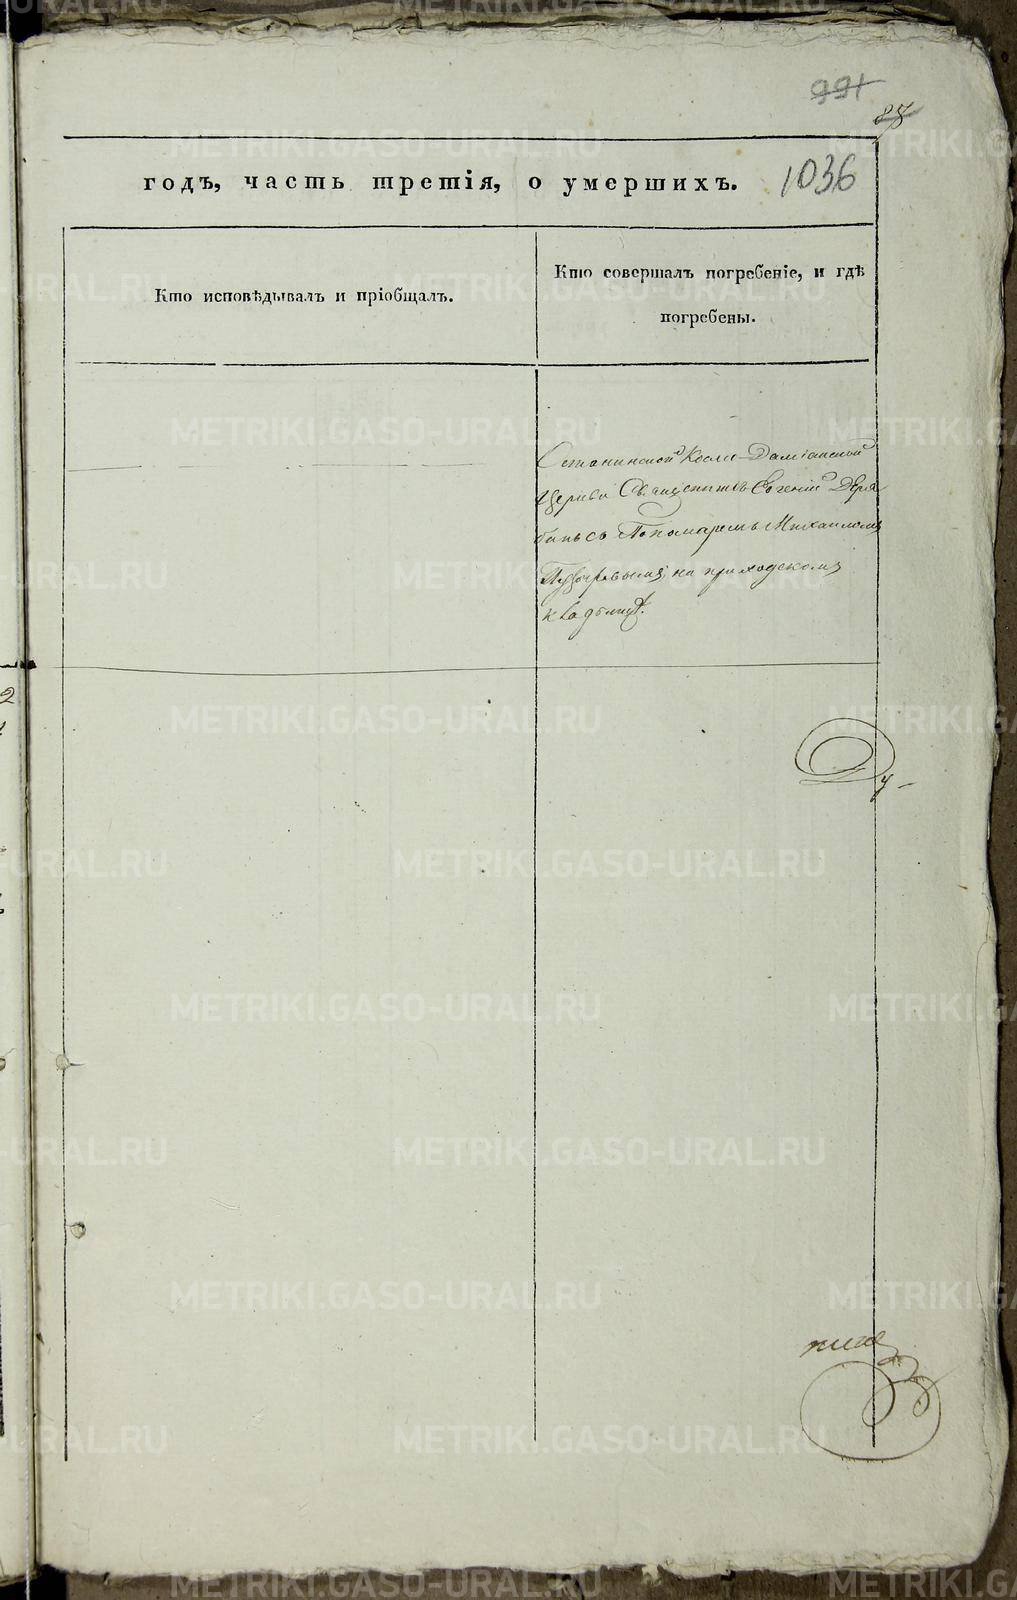 991
87
годъ, часть третія, о умершихъ. 1036
Кто исповѣдывалъ и пріобщалъ.
Кто совершалъ погребеніе, и гдѣ
погребены.
Останинской Косма-Даміанской
Церкви Священникъ Евгеній Деря
бинъ съ Пономаремъ Михаиломъ
на приходскомъ
кладбищѣ.
Ду-
METRIKI.GASO-URAL.RU